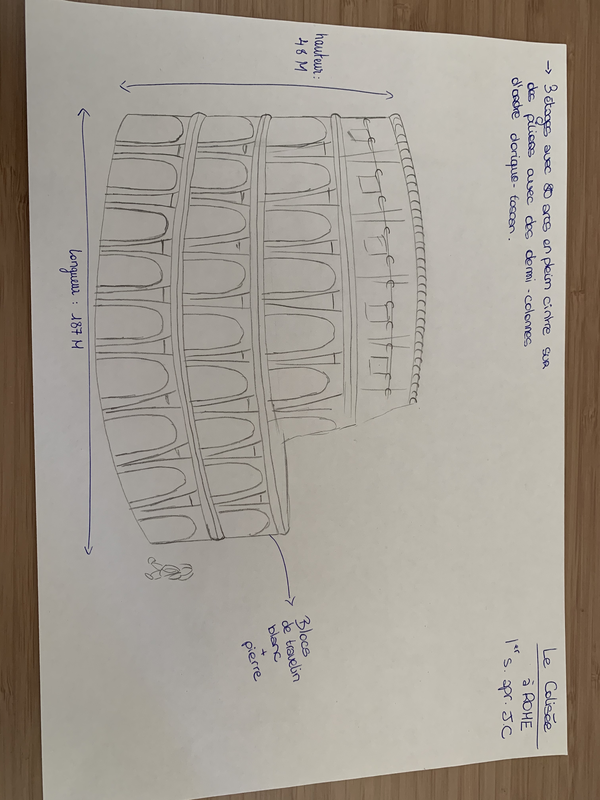 Le Colisée
à ROME
1er s. apr. J.C
→ 3 étages avec 80 arcs en plein cintre sur
des piliers avec des demi-colonnes
d'ordre dorique-toscan.
hauteur:
48 M
Longueur: 187 M
Blocs
de travelin
blanc
+
pierre